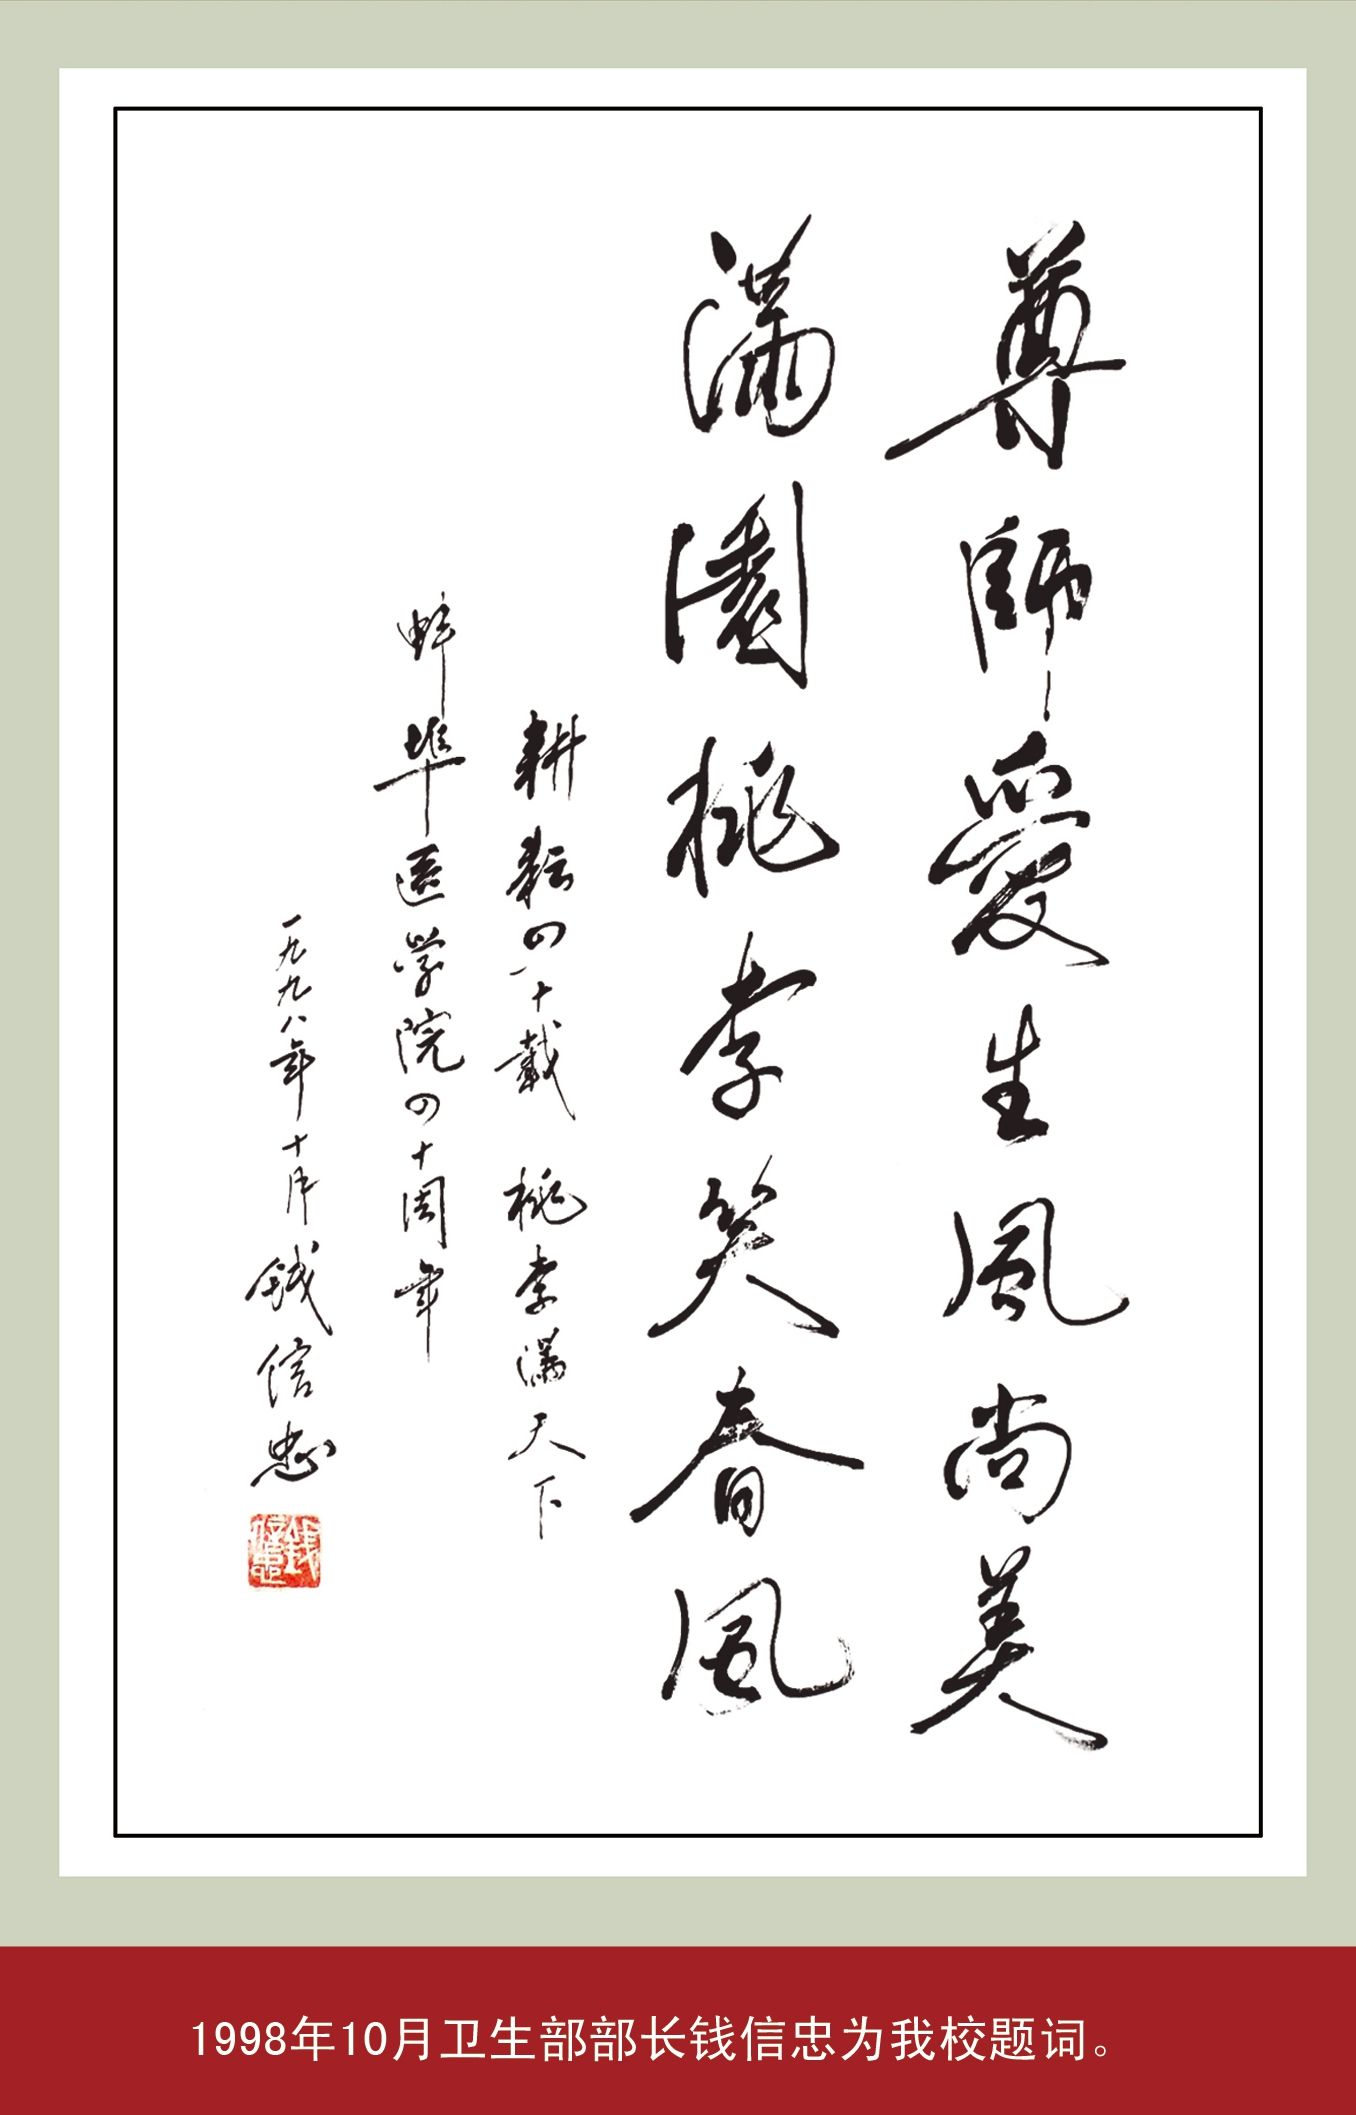 尊師愛生風尚美
滿園桃李笑春風
耕耘四十載 桃李滿天下
蚌埠医学院四十周年
一九九八年十月 钱信忠
钱信忠
1998年10月卫生部部长钱信忠为我校题词。